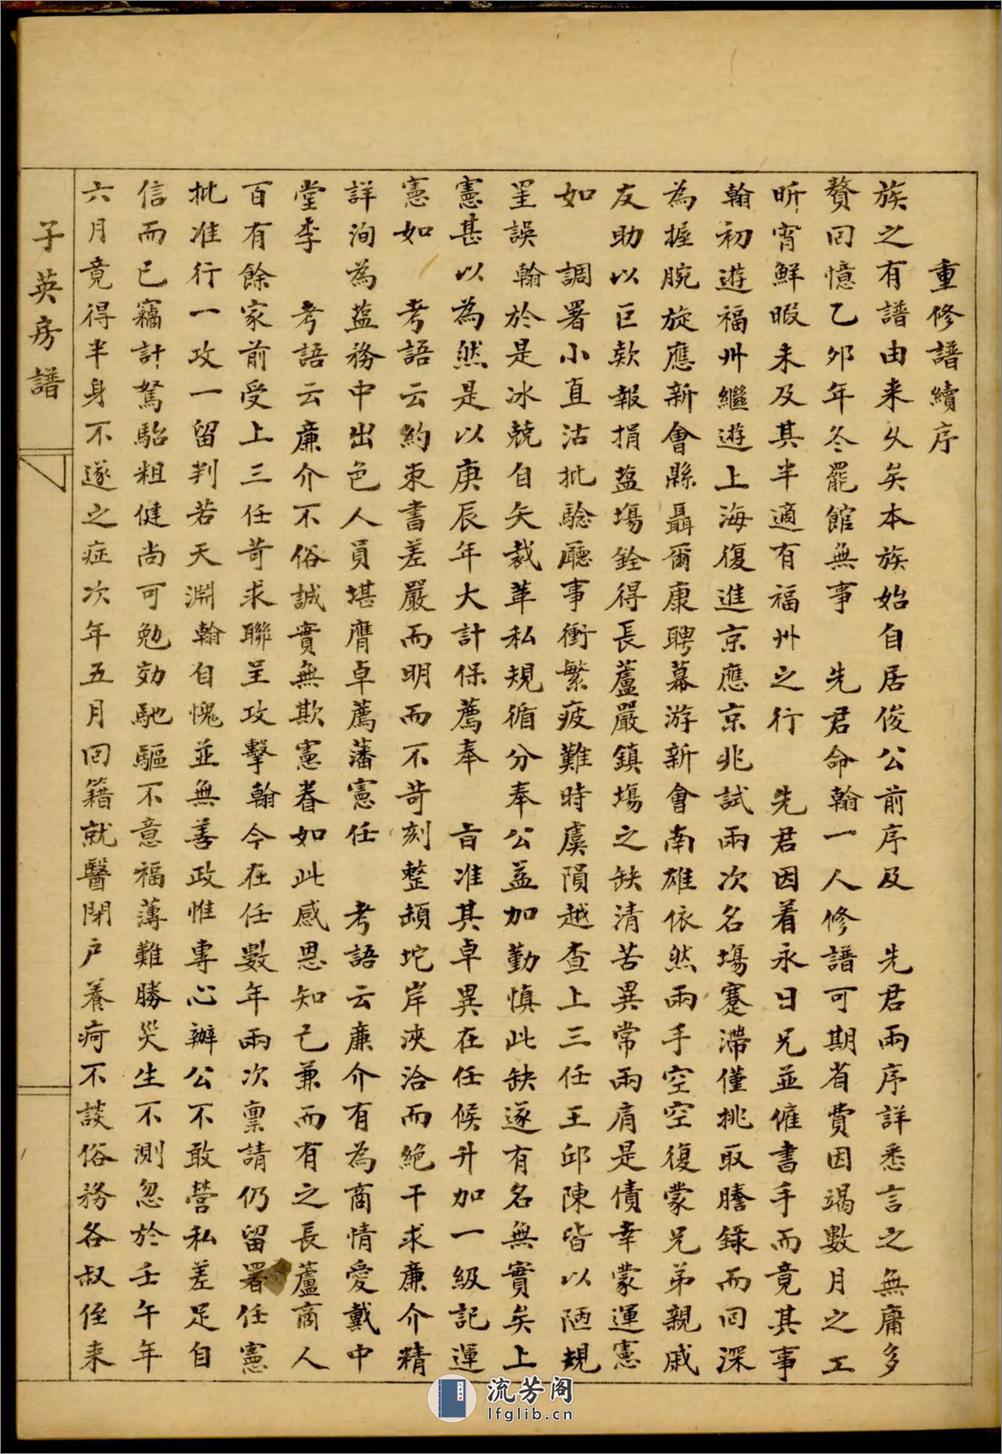 重修譜續序
族之有譜由来久矣本族始自居俊公前序及　先君兩序詳悉言之無庸多
贅回憶乙夘年冬罷館無事　先君命翰一人修譜可期省費因竭數月之工
昕宵鮮暇未及其半適有福州之行　先君因着永日兄並僱書手而竟其事
翰初遊福州繼遊上海復進京應京兆試兩次名塲蹇滯僅挑取謄錄而回深
為握腕旋應新會縣聶爾康聘幕游新會南雄依然兩手空空復蒙兄弟親戚
友助以巨款報捐鹽塲銓得長蘆嚴鎮塲之缺清苦異常兩肩是債幸蒙運憲
如　調署小直沽批驗廳事衝繁疲難時虞隕越查上三任王邱陳皆以陋規
罣誤翰於是冰兢自矢裁革私規循分奉公益加勤慎此缺遂有名無實矣上
憲甚以為然是以庚辰年大計保薦奉　旨准其卓異在任候升加一級記運
憲如　考語云約束書差嚴而明而不苛刻整頓坨岸浹洽而絕干求廉介精
詳洵為鹽務中出色人員堪膺卓薦藩憲任　考語云廉介有為商情愛戴中
堂李　考語云廉介不俗誠實無欺憲眷如此感恩知己兼而有之長蘆商人
百有餘家前受上三任苛求聯呈攻擊翰今在任數年兩次禀請仍留署任憲
批准行一攻一留判若天淵翰自愧並無善政惟專心辦公不敢營私差足自
信而已竊計駑駘粗健尚可勉効馳驅不意福薄難勝災生不測忽於壬午年
六月竟得半身不遂之症次年五月回籍就醫閉户養疴不談俗務各叔侄来
子英房譜
流芳阁
lfglib.cn